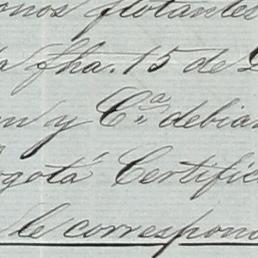 onos flotantes
a fha. 15 de D
n y Cª debian
ogotá Certific
le correspond